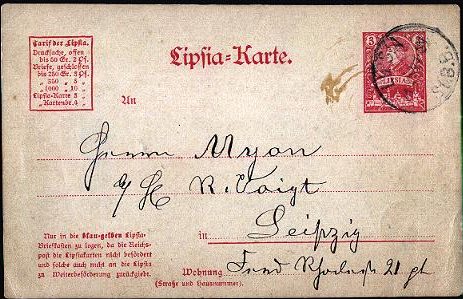 Tarif der Lipsia.
Drucksache, offen
bis 50 Gr. 2 Pf.
Briefe, geschlossen
bis 250 Gr. 3 Pf.
" 500 " 5 "
" 1000 " 10 "
Lipsia-Karte 3 "
Lipsia-Karte.
3
LIPSIA
An
Herrn Myon
R. Voigt
in Leipzig
Nur in die blau-gelben Lipsia-
Briefkasten zu legen, da die Reichs-
post die Lipsiakarten nicht befördert
und solche auch nicht an die Lipsia
zu Weiterbeförderung zurückgiebt.
Wohnung
(Straße und Hausnummer).